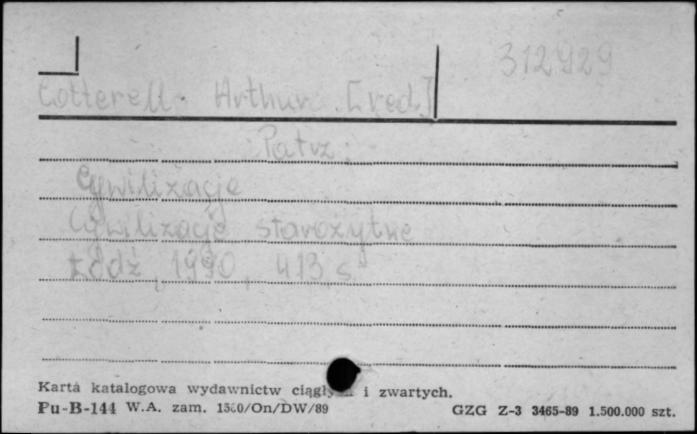 312929
Cotterell Arthur [red.]
Patrz:
Cywilizacje
Cywilizacje starożytne
Łódź, 1990, 413, s
Karta katalogowa wydawnictw ciągłych i zwartych.
Pu-B-144 W.A. zam. 1560/On/DW/89 GZG Z-3 3465-89 1.500.000 szt.